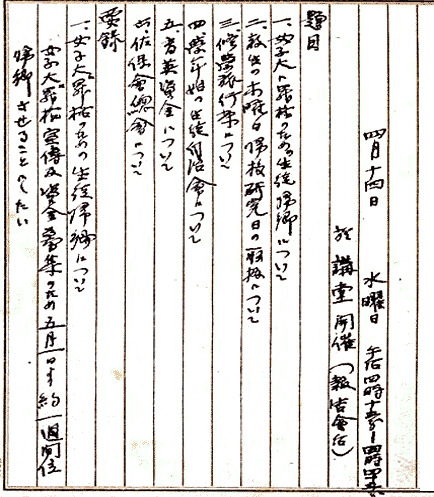 四月十四日 水曜日 午后四時十五分―四時四十五分
於講堂開催(報告会后)
題目
一、女子大昇格のための生徒帰郷について
二、教生の木曜日帰校研究日の取扱について
三、修学旅行案について
四、学年始の生徒自治会について
五、育英資金について
六、佐保会総会について
要録
一、女子大昇格のための生徒帰郷について
女子大昇格宣傳及資金募集のため五月一日より約一週間位
帰郷させることにしたい